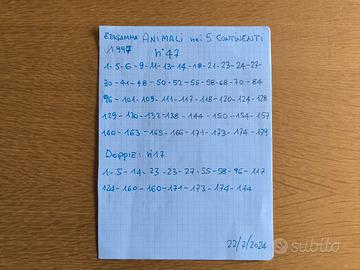 EDIGAMMA ANIMALI NEI 5 CONTINENTI
1997 N°47
1-5-6-9-11-13-14-18-21-23-24-27-
30-41-48-50-52-55-58-68-70-84
96-101-109-111-117-118-120-124-128
129-130-132-138-144-150-154-157
160-163-165-166-171-173-174-179
DOPPIE: N°17
1-5-14-23-23-27-55-58-96-117
124-160-160-171-173-174-174
22/7/2024
subito